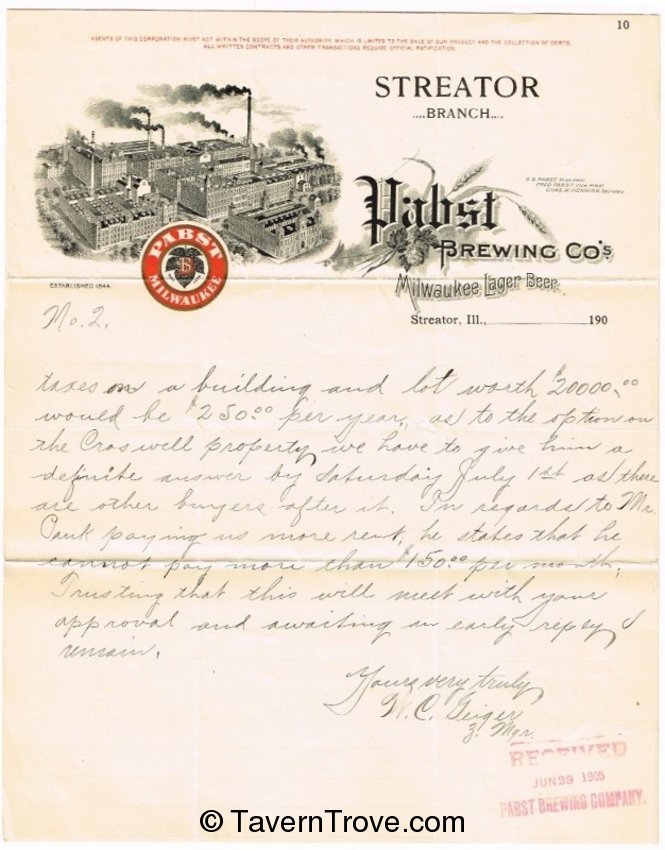 10
AGENTS OF THIS CORPORATION MUST ACT WITHIN THE SCOPE OF THEIR AUTHORITY WHICH IS LIMITED TO THE SALE OF OUR PRODUCT AND THE COLLECTION OF DEBTS.
ALL WRITTEN CONTRACTS AND OTHER TRANSACTIONS REQUIRE OFFICIAL RATIFICATION.
STREATOR
....BRANCH....
G. G. PABST, President
FRED PABST, Vice Prest.
CHAS. W. HENNING, Secretary
Pabst
BREWING CO'S
Milwaukee Lager Beer.
PABST
B
MILWAUKEE
ESTABLISHED 1844.
Streator, Ill., 190
No. 2.
taxes on a building and lot worth $20000.00
would be $250.00 per year, as to the option on
the Croswell property, we have to give him a
definite answer by Saturday July 1st as there
are other buyers after it. In regards to Mr.
Pauk paying us more rent, he states that he
cannot pay more than $150.00 per month,
Trusting that this will meet with your
approval and awaiting an early reply I
remain,
Yours very truly,
W. C. Geiger
Mgr.
RECEIVED
JUN 29 1905
PABST BREWING COMPANY.
© TavernTrove.com